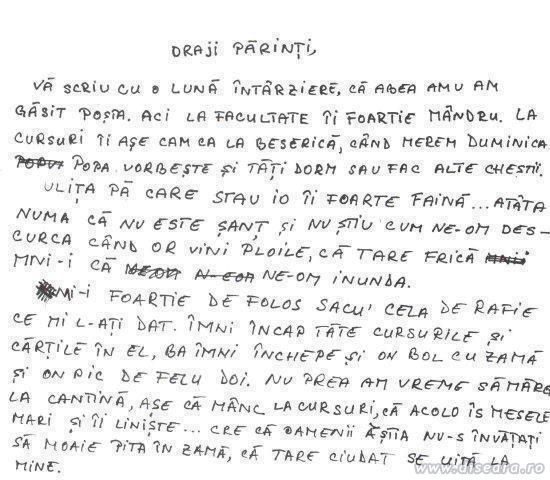 DRAJI PĂRINȚI,
VĂ SCRIU CU O LUNĂ ÎNTÂRZIERE, CĂ ABEA AMU AM
GĂSIT POȘTA. ACI LA FACULTATE ÎI FOARTIE MÂNDRU. LA
CURSURI ÎI AȘE CAM CA LA BESERICĂ, CÂND MEREM DUMINICA
POPA VORBEȘTE ȘI TĂȚI DORM SAU FAC ALTE CHESTII.
ULIȚA PĂ CARE STAU IO ÎI FOARTE FAINĂ... ATÂTA
NUMA CĂ NU ESTE ȘANȚ ȘI NU ȘTIU CUM NE-OM DES-
CURCA CÂND OR VINI PLOILE, CĂ TARE FRICĂ
MNI-I CĂ NE-OM INUNDA.
MI-I FOARTIE DE FOLOS SACU' CELA DE RAFIE
CE MI L-AȚI DAT. ÎMNI ÎNCAP TĂTE CURSURILE ȘI
CĂRȚILE ÎN EL, BA ÎMNI ÎNCHEPE ȘI ON BOL CU ZAMĂ
ȘI ON PIC DE FELU DOI. NU PREA AM VREME SĂ MĂRE
LA CANTINĂ, AȘE CĂ MÂNC LA CURSURI, CĂ ACOLO ÎS MESELE
MARI ȘI ÎI LINIȘTE... CRE CĂ OAMENII ĂȘTIA NU-S ÎNVĂȚAȚI
SĂ MOAIE PITA ÎN ZAMĂ, CĂ TARE CIUDAT SE UITĂ LA
MINE.
www.diseara.ro